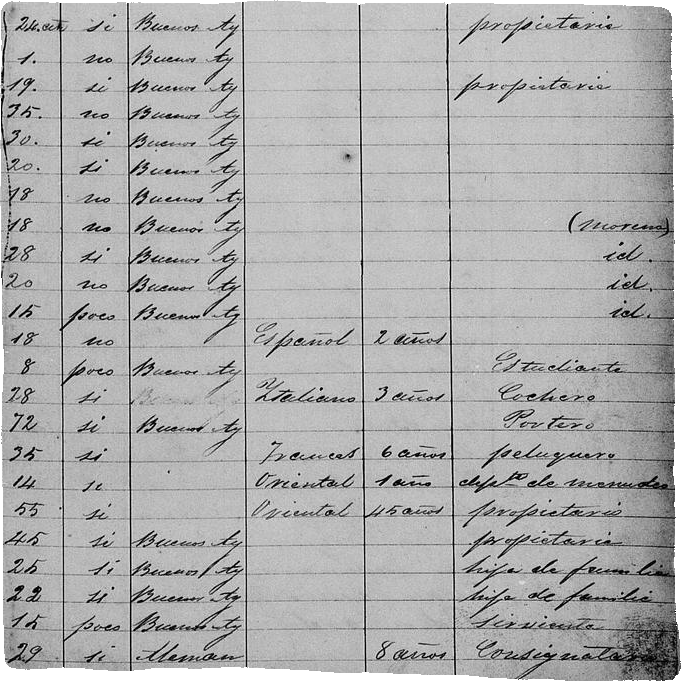 24 si Buenos Ay propietario
1. no Buenos Ay
19. si Buenos Ay propietario
35. no Buenos Ay
30. si Buenos Ay
20. si Buenos Ay
18 no Buenos Ay
18 no Buenos Ay (moreno)
28 si Buenos Ay id.
20 no Buenos Ay id.
15 poco Buenos Ay id.
18 no Español 2 años
8 poco Buenos Ay Estudiante
28 si Italiano 3 años Cochero
72 si Buenos Ay Portero
35 si Frances 6 años peluquero
14 si Oriental 1 año depto de menudeo
55 si Oriental 45 años propietario
45 si Buenos Ay propietario
25 si Buenos Ay hija de familia
22 si Buenos Ay hija de familia
15 poco Buenos Ay sirviente
29 si Aleman 8 años